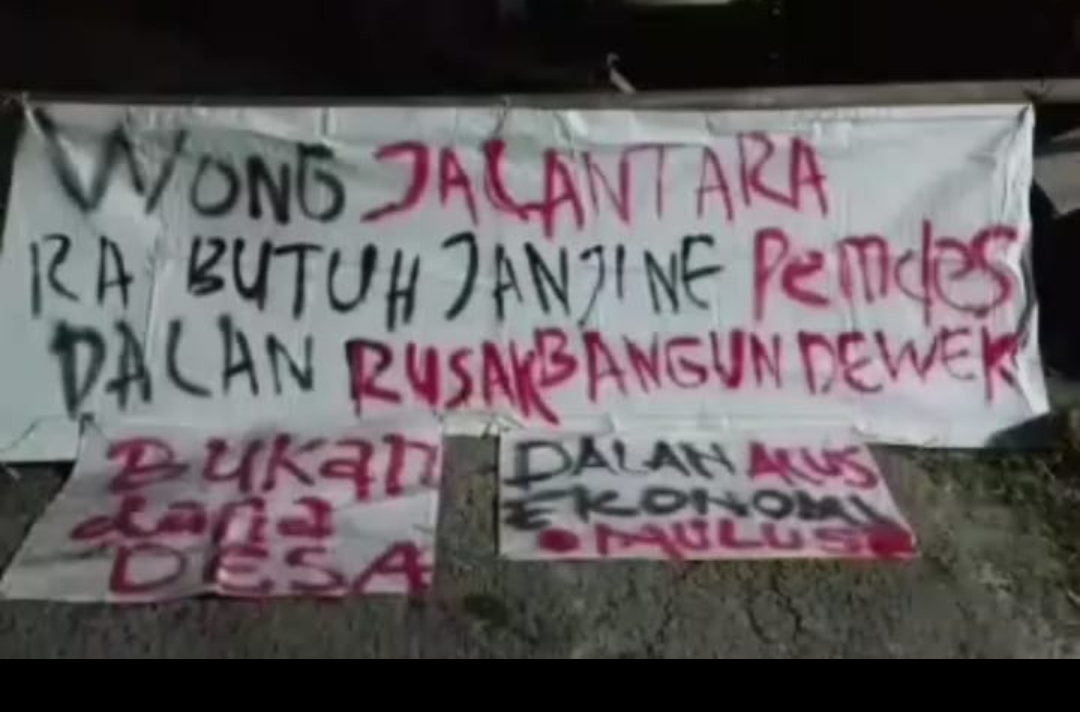 WONG JALANTARA
RA BUTUH JANJINE Pemdes
DALAN RUSAK BANGUN DEWEK
BUKAN
dana
DESA
DALAN ALUS
EKONOMI
MULUS